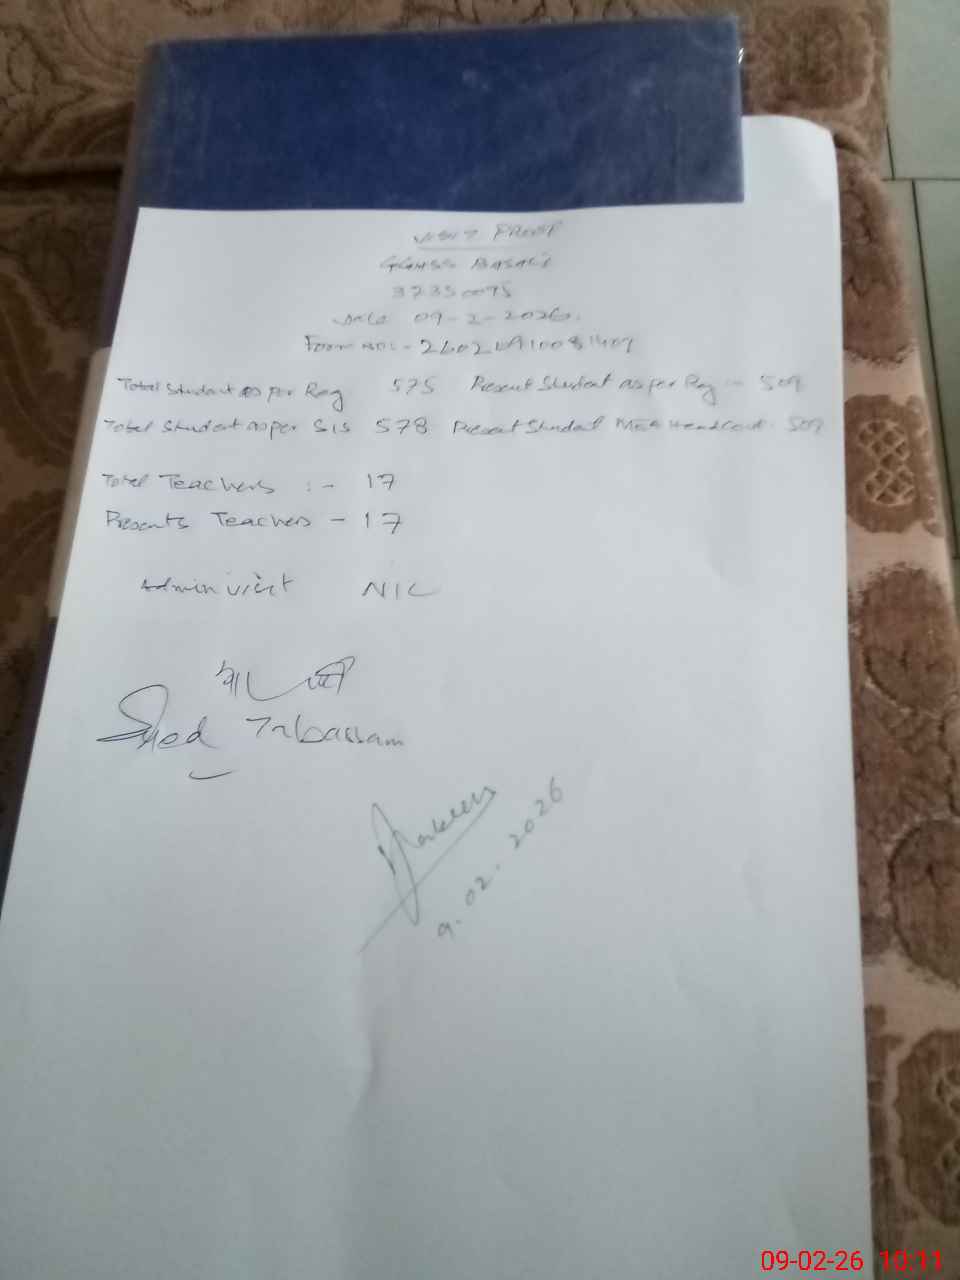 VISIT PROOF
GGHSS BASALI
37350075
Date 09-2-2026.
Form No:- 26020910081407
Total Student as per Reg 575 Present Student as per Reg :- 509
Total Student as per SIS 578 Present Student MEA Headcount. 509
Total Teachers :- 17
Presents Teachers - 17
Admin visit NIL
Syed Tabassam
9.02.2026
09-02-26 10:11